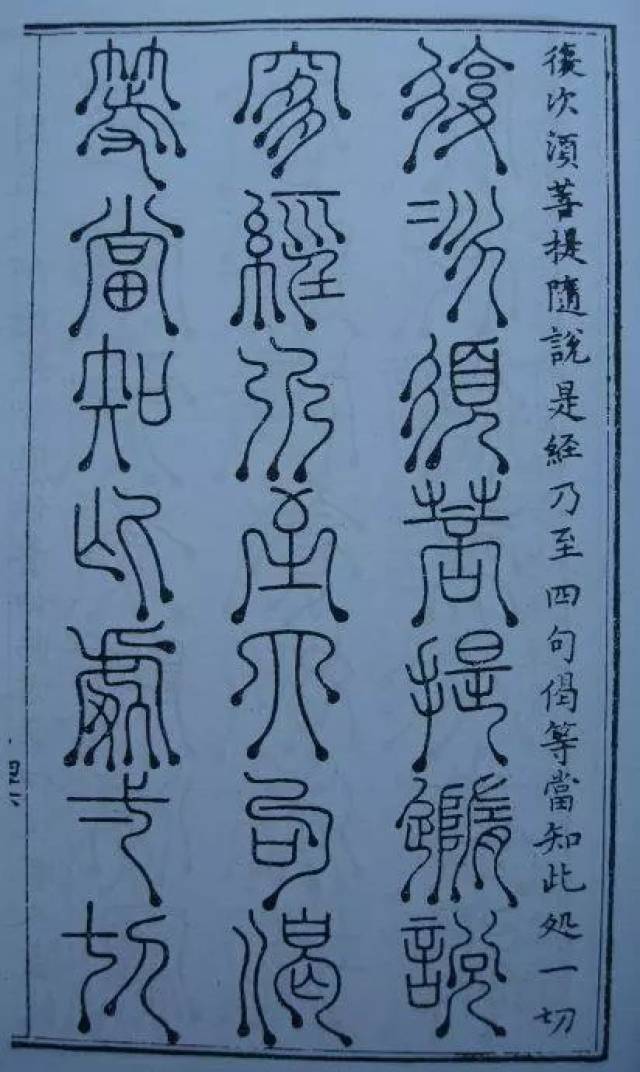 復次湏菩提隨說是経乃至四句偈等當知此処一切
復次須菩提隨說
是經乃至四句偈
等當知此處一切